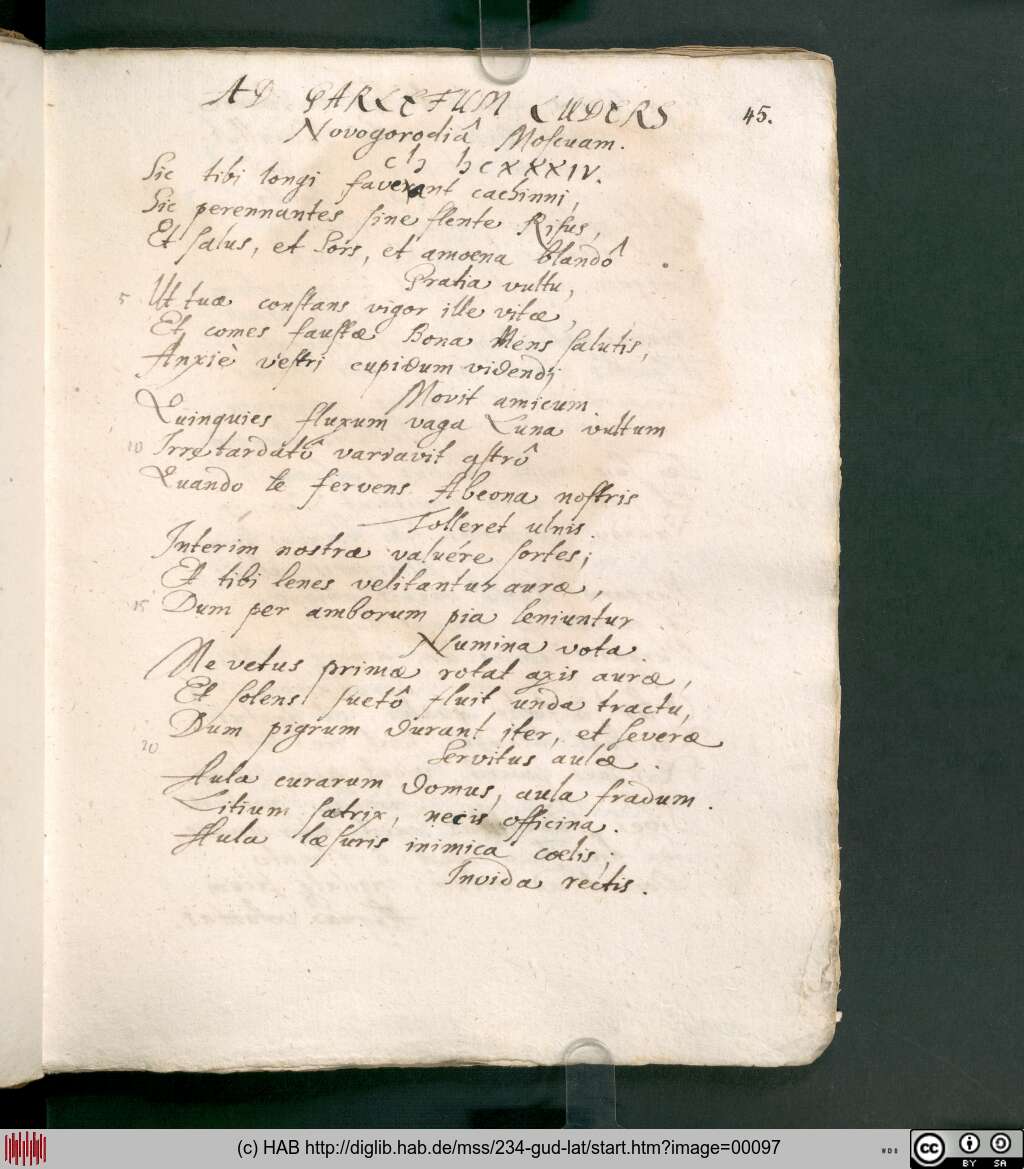 AD GARLEFUM LUDERS
45.
Novogorodiâ Moscuam.
cIɔ Iɔ c XXXIV.
Sic tibi longi faverant cachinni,
Sic perennantes sine flente Risus,
Et salus, et Sors, et amoena blandô
Gratia vultu,
5 Ut tuæ constans vigor ille vitæ,
Et comes faustæ Bona Mens salutis,
Anxiè vestri cupidum videndi
Movit amicum.
Quinquies fluxum vaga Luna vultum
10 Irretardatô variavit astrô
Quando te fervens Abeona nostris
Tolleret ulnis.
Interim nostræ valuére sortes;
Et tibi lenes velitantur auræ,
15 Dum per amborum pia leniuntur
Numina vota.
Me vetus primæ rotat axis auræ,
Et solens suetô fluit unda tractu,
Dum pigrum durant iter, et severæ
20 Servitus aulæ.
Aula curarum domus, aula fradum.
Litium satrix, necis officina.
Aula læsuris inimica cœlis;
Invida rectis.
(c) HAB http://diglib.hab.de/mss/234-gud-lat/start.htm?image=00097
cc BY SA